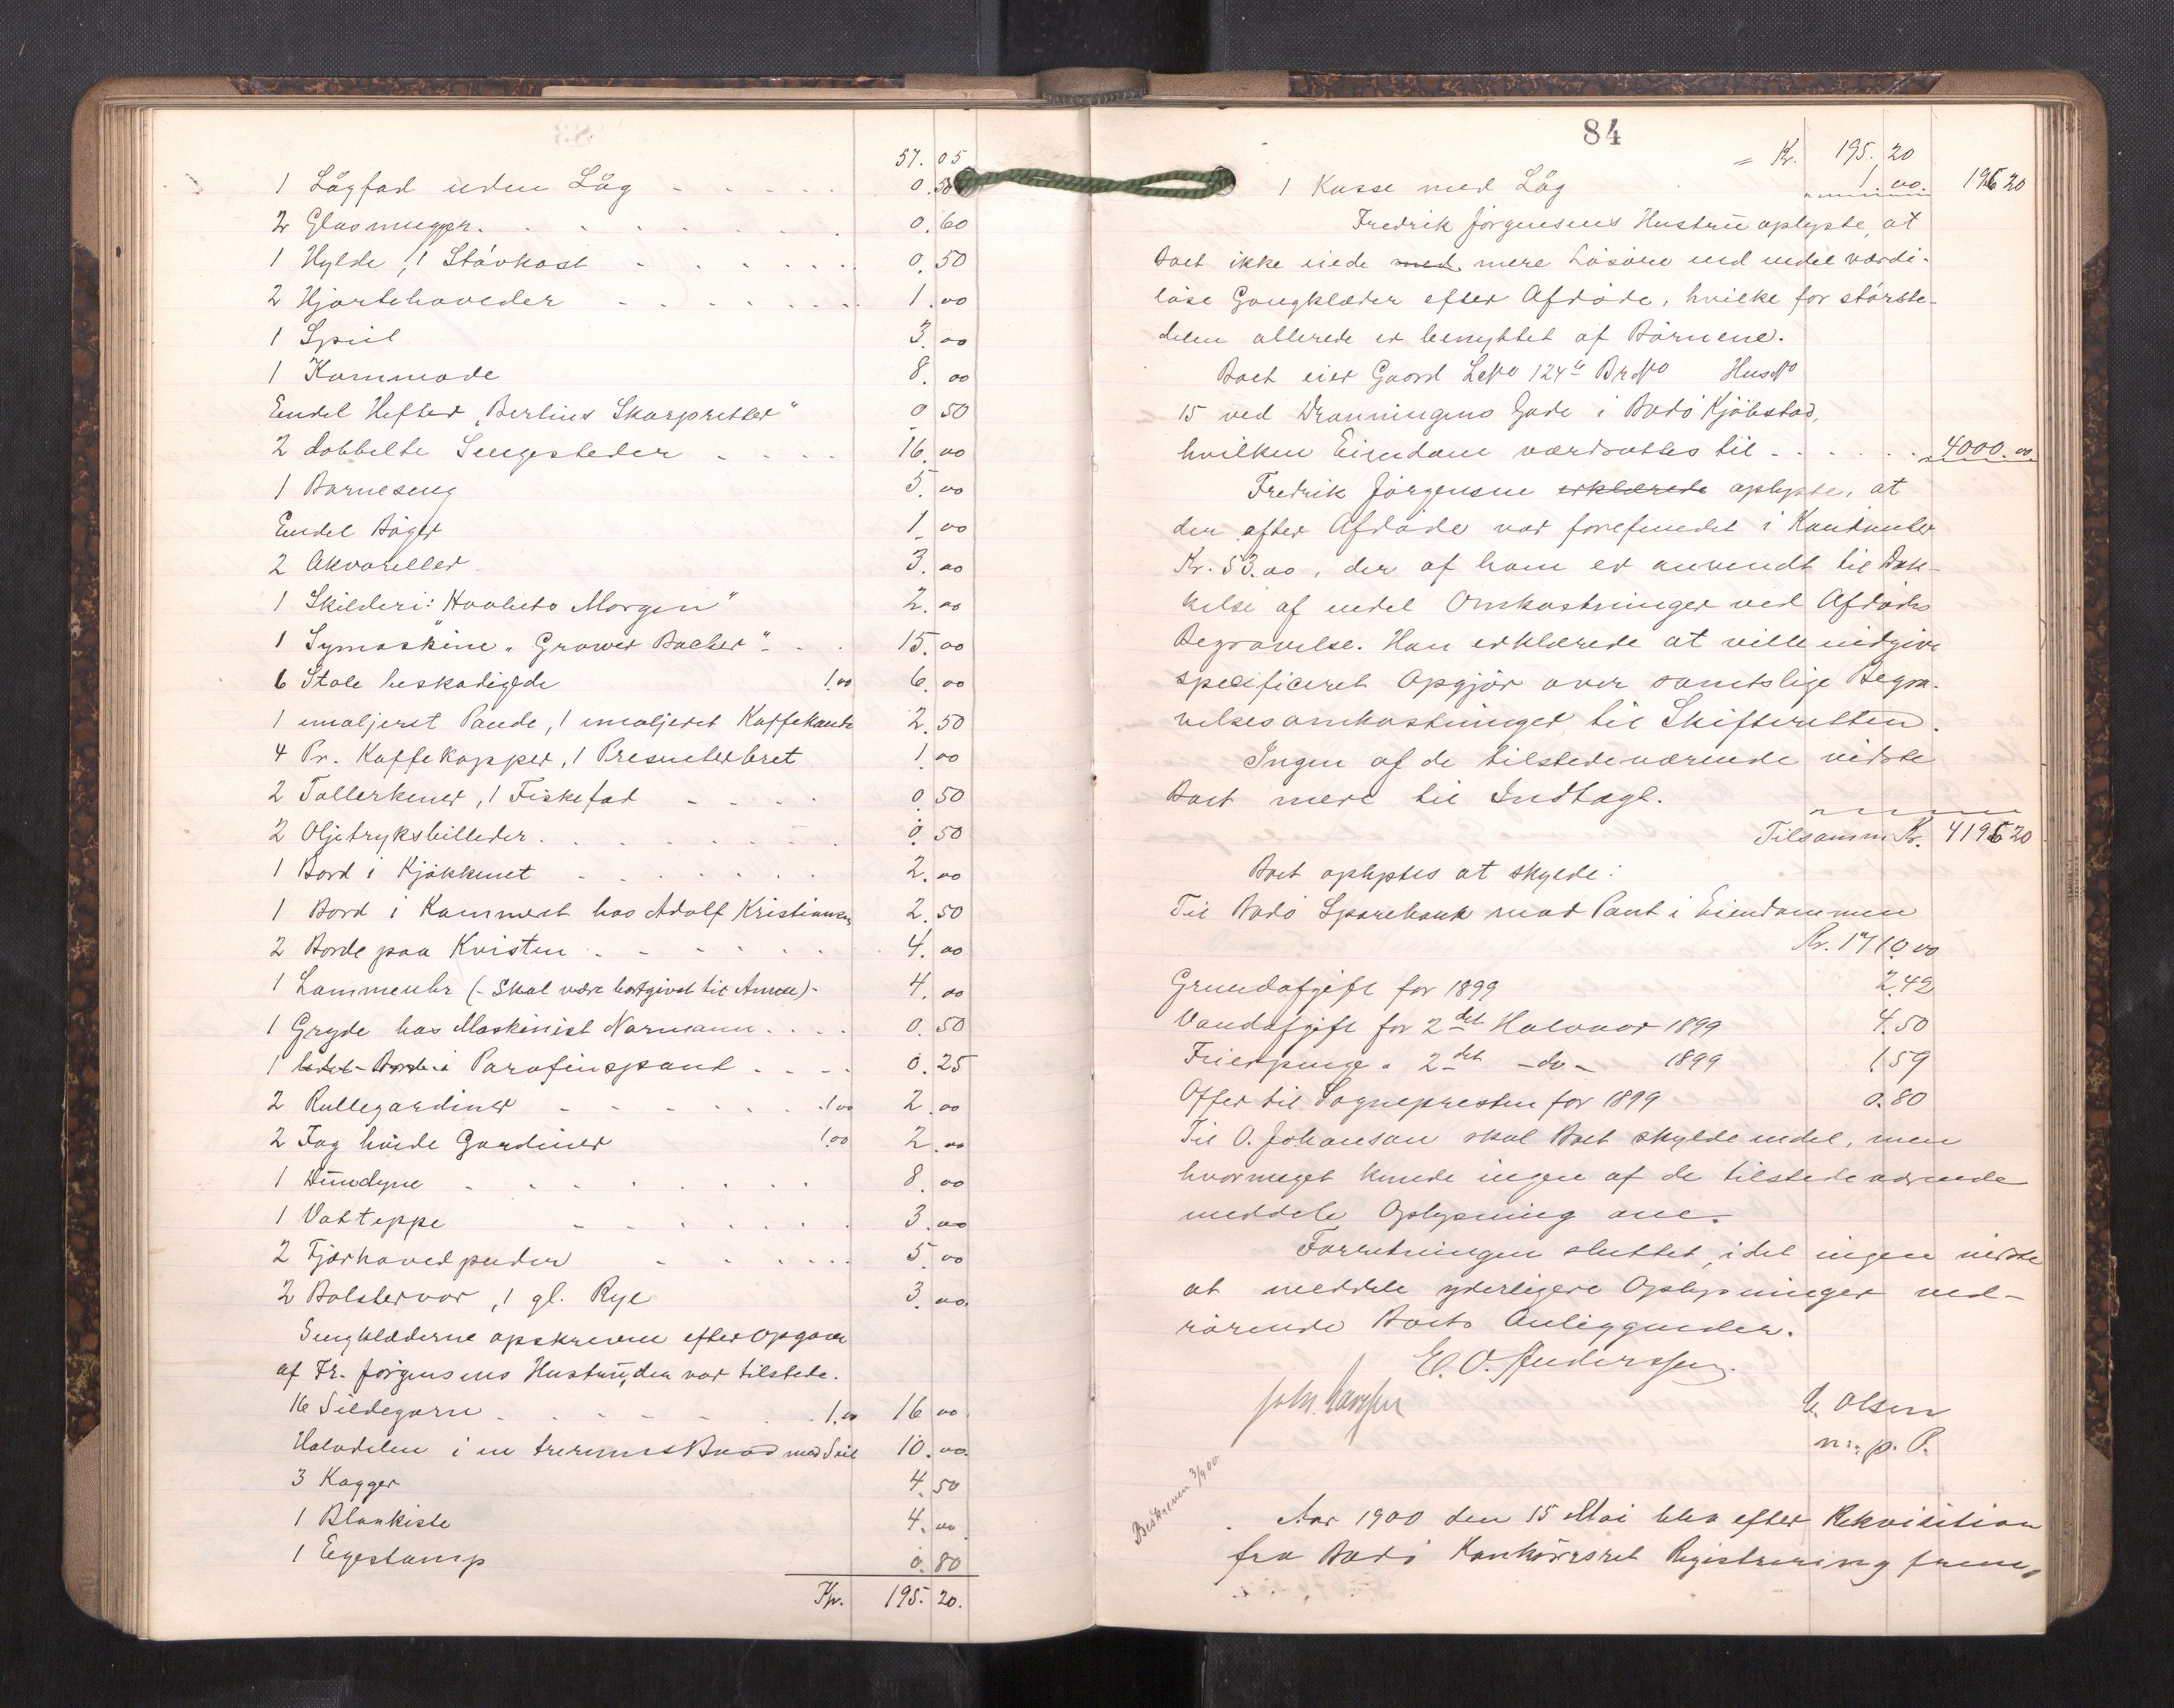 57.05
1 Lågfad uden Låg - - - - - 0.50
2 Glasmugger. 0.60
1 Hylde, 1 Støvkost - - - - 0.50
2 Hjortehoveder - - - - 1.00
1 Speil 3.00
1 Kommode 8.00
Endel Hefter "Berlins Skarpretter" 0 50
2 dobbelte Sengesteder - - - - 16.00
1 Barneseng 5.00
Endel Bøger 1.00
2 Akvareller 3.00
1 Skilderi: "Havets Morgen" 2.00
1 Symaskine "Grower Backer" - . 15.00
6 Stole beskadigede 1.00 6.00
1 emaljeret Pande, 1 emaljeret Kaffekande 2.50
4 Pr. Kaffekopper, 1 Presenterbret 1.00
2 Tallerkener, 1 Fiskefad - - - 0.50
2 Oljetryksbilleder. 0.50
1 Bord i Kjøkkenet - - - - 2.00
1 Bord i Kammeret hos Adolf Kristiansen 2.50
2 Borde paa Kvisten - - - - 4.00
1 Lommeuhr (- Skal være bortgivet til Anna) - 4.00
1 Gryde hos Maskinist Normann. . . . 0.50
1 Parafinspand . . - - 0.25
2 Rullegardiner - - - - 1.00 2.00
2 Fag hvide Gardiner 1.00 2.00
1 Dundyne - - - - - 8.00
1 Vatteppe - - - - 3.00
2 Fjærhovedpuder - - - . . . 5.00
2 Bolstervar, 1 gl. Rye 3.00.
Sengklæderne opskreven efter Opgave
af Fr. Jørgensens Hustru, der var tilstede.
16 Sildegarn - - - - - 1.00 16.00
Halvdelen i en trerums Baad med Seil 10.00.
3 Kagger 4.50
1 Blankiste 4.00
1 Egestamp 0.80
Kr. 195.20.
84
= Kr. 195.20
1 Kasse med Låg 1.00. 196 20
Fredrik Jørgensens Hustru oplyste, at
Boet ikke eiede med mere Løsøre end endel værdi-
løse Gangklæder efter Afdøde, hvilke for største-
delen allerede er benyttet af Børnene.
Boet eier Gaard LNo 124 BrNo HusNo
15 ved Dronningens Gade i Bodø Kjøbstad,
hvilken Eiendom værdsattes til - . . . . . 4000.00.
Fredrik Jørgensen erklærede oplyste, at
der efter Afdøde var forefundet i Kontanter
Kr. 53.00, der af ham er anvendt til Dæk-
kelse af endel Omkostninger ved Afdødes
Begravelse. Han erklærede at ville indgive
specificeret Opgjør over samtlige Begra-
velsesomkostninger til Skifteretten.
Ingen af de tilstedeværende vidste
Boet mere til Indtægt.
Tilsamm. Kr. 4196 20
Boet oplystes at skylde:
Til Bodø Sparebank mod Pant i Eiendommen
Kr. 1710.00
Grundafgift for 1899 2.42
Vandafgift for 2det Halvaar 1899 4.50
Feierpenge " 2det -do- 1899 1.59
Offer til Sognepresten for 1899 0.80
Til O. Johansen skal Boet skylde endel, men
hvormeget kunde ingen af de tilstedeværende
meddele Oplysning om.
Forretningen sluttet, idet ingen vidste
at meddele yderligere Oplysninger ved-
rørende Boets Anliggender.
E. O. Anderssen.
Joh. Larssen
E. Olsen
m. p. P.
Beskreven 3/900
Aar 1900 den 15 Mai blev efter Rekvisition
fra Bodø Konkursret Registrering frem-